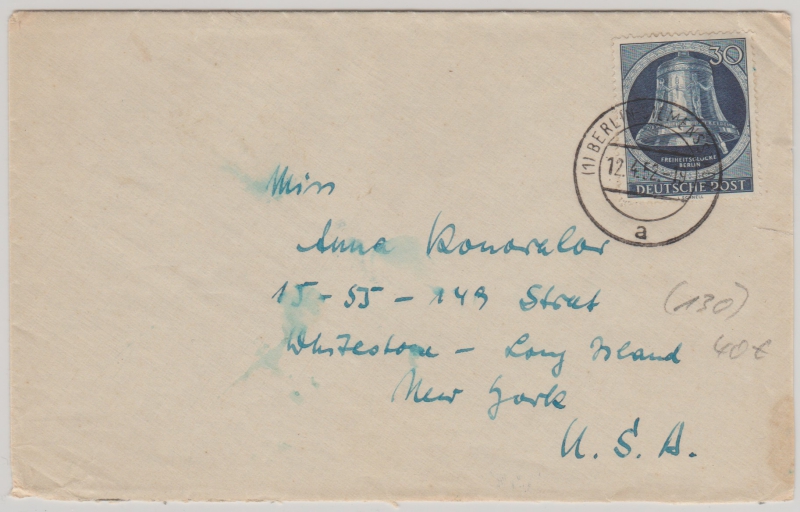 30
FREIHEITSGLOCKE
BERLIN
DEUTSCHE POST
(1) BERLIN
12.4.52
a
Miss
Anna Konovalov
15-55-149 Street
Whitestone - Long Island
New York
U.S.A.
(130)
40€